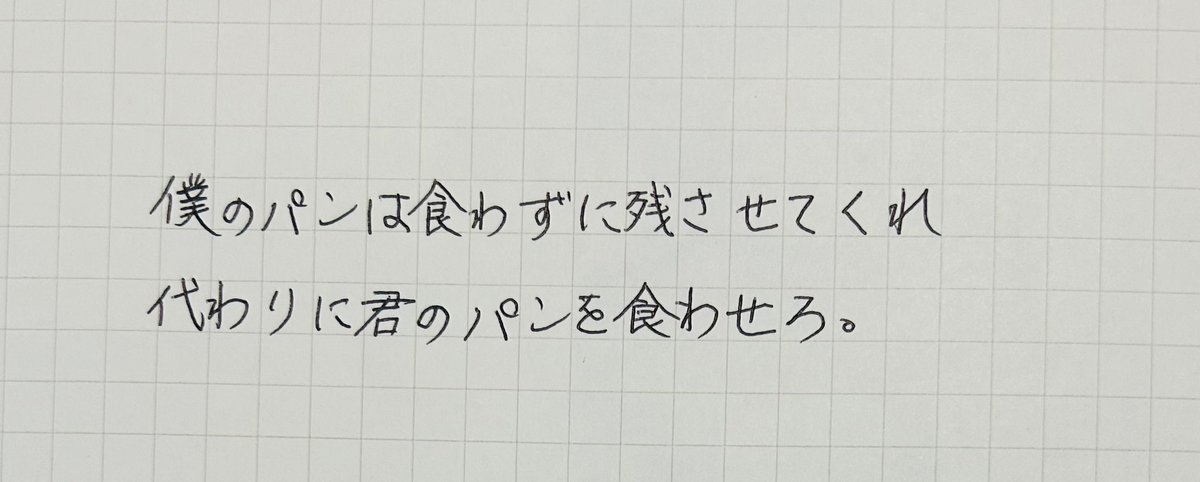 僕のパンは食わずに残させてくれ
代わりに君のパンを食わせろ。